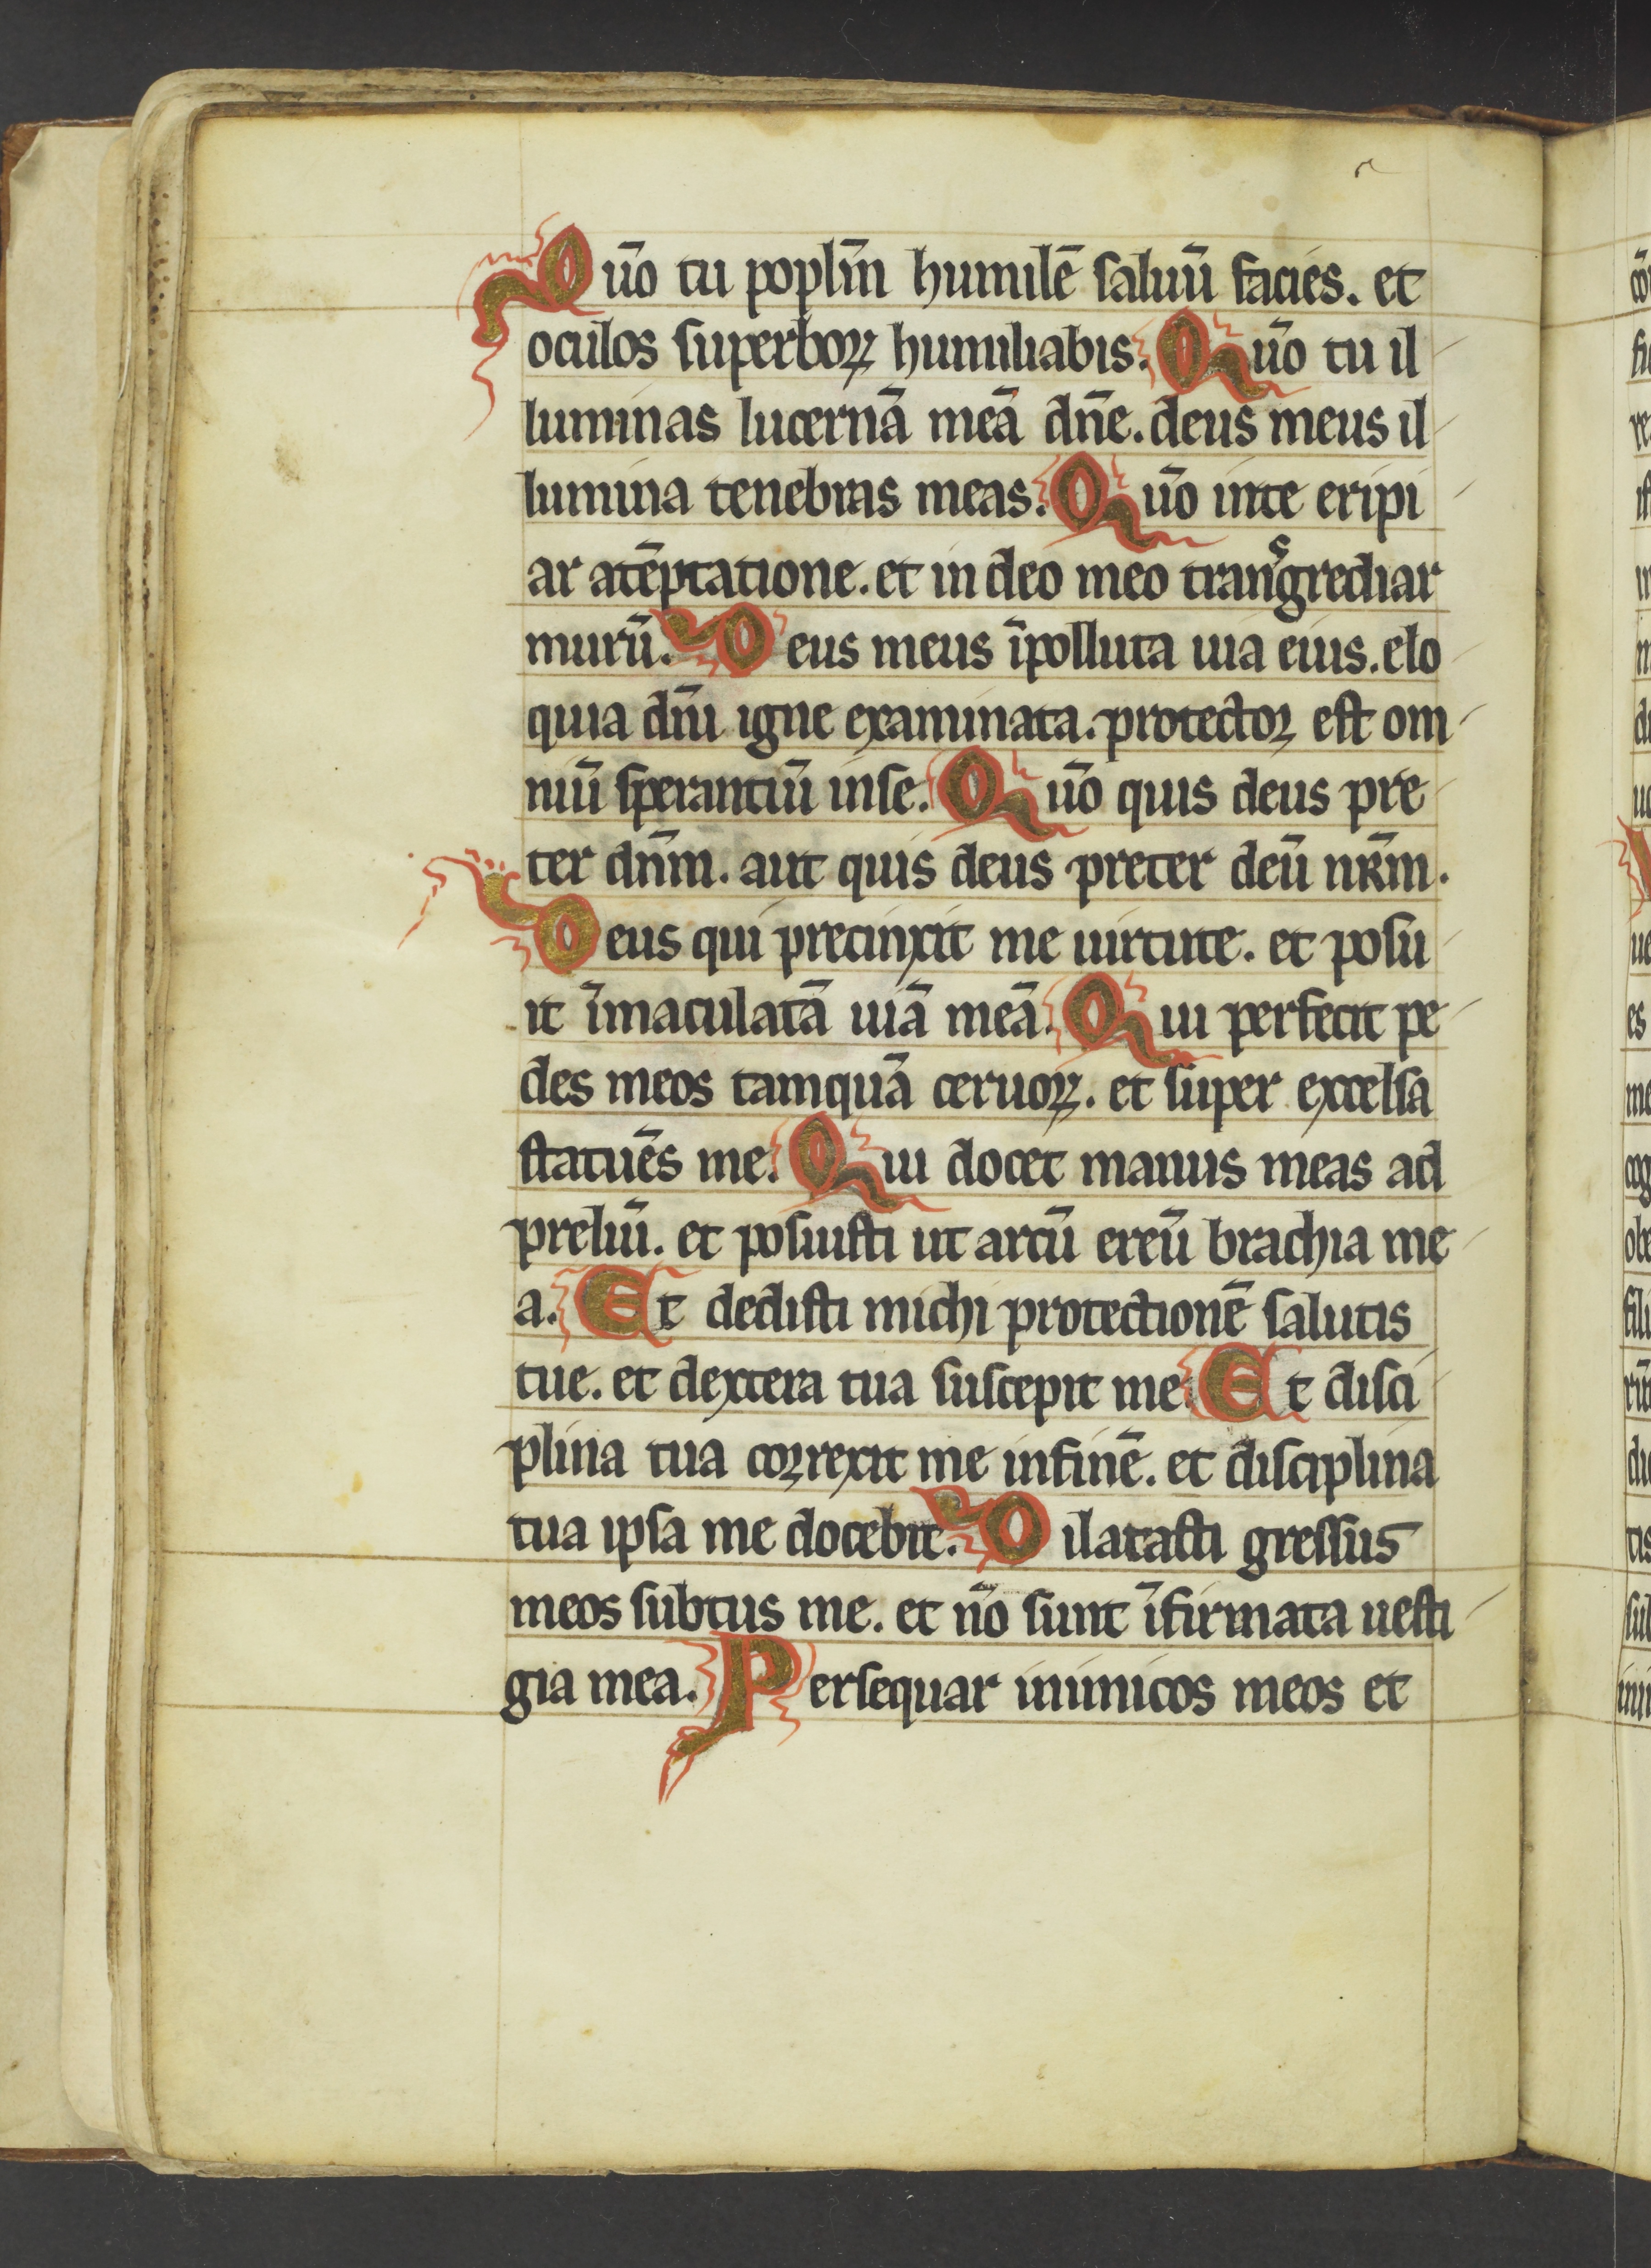 Qūo tu poplm̄ humilē saluū facies. et
oculos superboꝝ humiliabis. Qūo tu il
luminas lucernā meā dn̄e. deus meus il
lumina tenebras meas. Qūo inte eripi
ar atēptatione. et in deo meo transgrediar
murū. Deus meus īpolluta uia eius. elo
quia dn̄i igne examinata. protector est om
niū sperantiū inse. Qūo quis deus pre
ter dn̄m. aut quis deus preter deū nr̄m.
Deus qui precinxit me uirtute. et posu
it īmaculatā uiā meā. Qui perfecit pe
des meos tamquā ceruoꝝ. et super excelsa
statuēs me. Qui docet manus meas ad
preliū. et posuisti ut arcū ereū brachia me
a. Et dedisti michi protectionē salutis
tue. et dextera tua suscepit me. Et disci
plina tua correxit me infinē. et disciplina
tua ipsa me docebit. Dilatasti gressus
meos subtus me. et nō sunt īfirmata uesti
gia mea. Persequar inimicos meos et